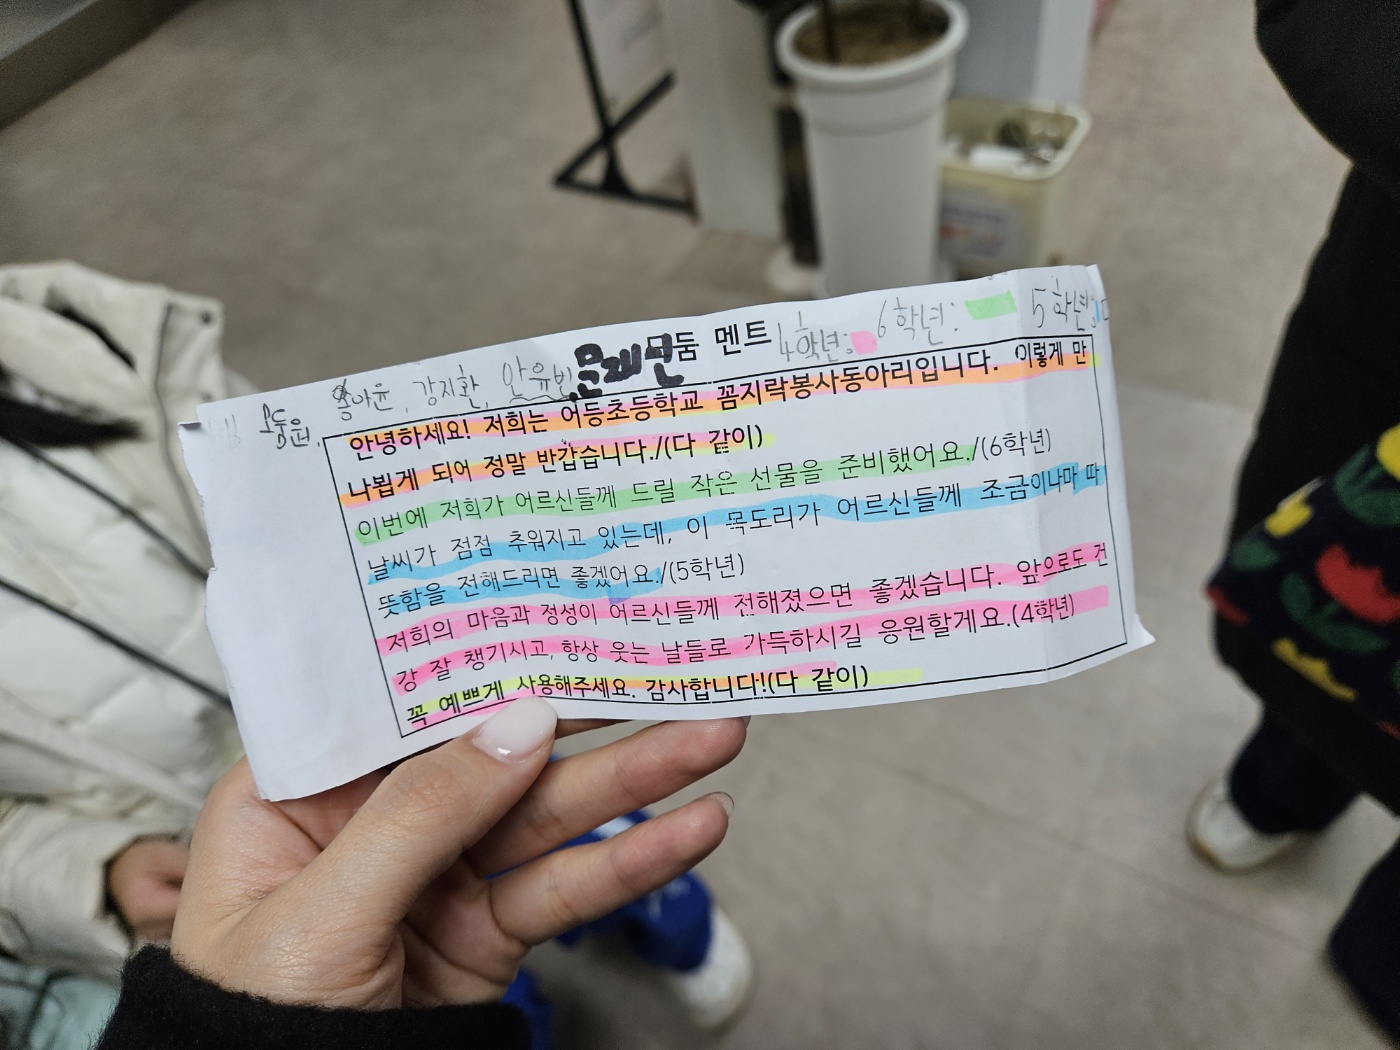 강지환, 안유빈 둠 멘트 4학년: 6학년: 5학년:
안녕하세요! 저희는 어등초등학교 꼼지락봉사동아리입니다. 이렇게 만
나뵙게 되어 정말 반갑습니다./(다 같이)
이번에 저희가 어르신들께 드릴 작은 선물을 준비했어요./(6학년)
날씨가 점점 추워지고 있는데, 이 목도리가 어르신들께 조금이나마 따
뜻함을 전해드리면 좋겠어요./(5학년)
저희의 마음과 정성이 어르신들께 전해졌으면 좋겠습니다. 앞으로도 건
강 잘 챙기시고, 항상 웃는 날들로 가득하시길 응원할게요.(4학년)
꼭 예쁘게 사용해주세요. 감사합니다!(다 같이)